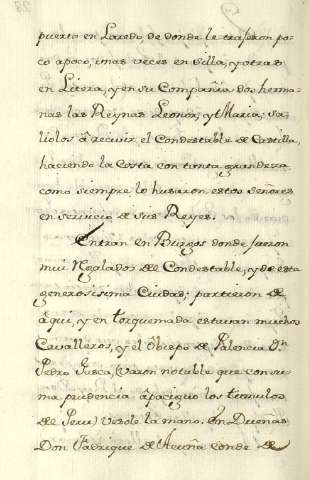 puerto en Laredo, de donde le trageron po-
co apoco, unas veces en silla, y otras
en Litera, y en su Compañia dos herma-
nas las Reynas Leonor, y Maria; sa-
liolos â recivir el Condestable de Castilla,
haciendo la Costa con tanta grandeza
como siempre lo husaron estos Señores
en servicio de sus Reyes.
Entran en Burgos donde fueron
mui Regalados del Condestable, y de esta
generosisima Ciudad; partieron de
âqui, y en torquemada estavan muchos
Cavalleros, y el Obispo de Palencia Dn.
Pedro Gasca, (varon notable que con su
ma prudencia âpaciguo los tumulos
del Peru) vesole la mano. En Dueñas
Don Fadrique de Acuña conde de